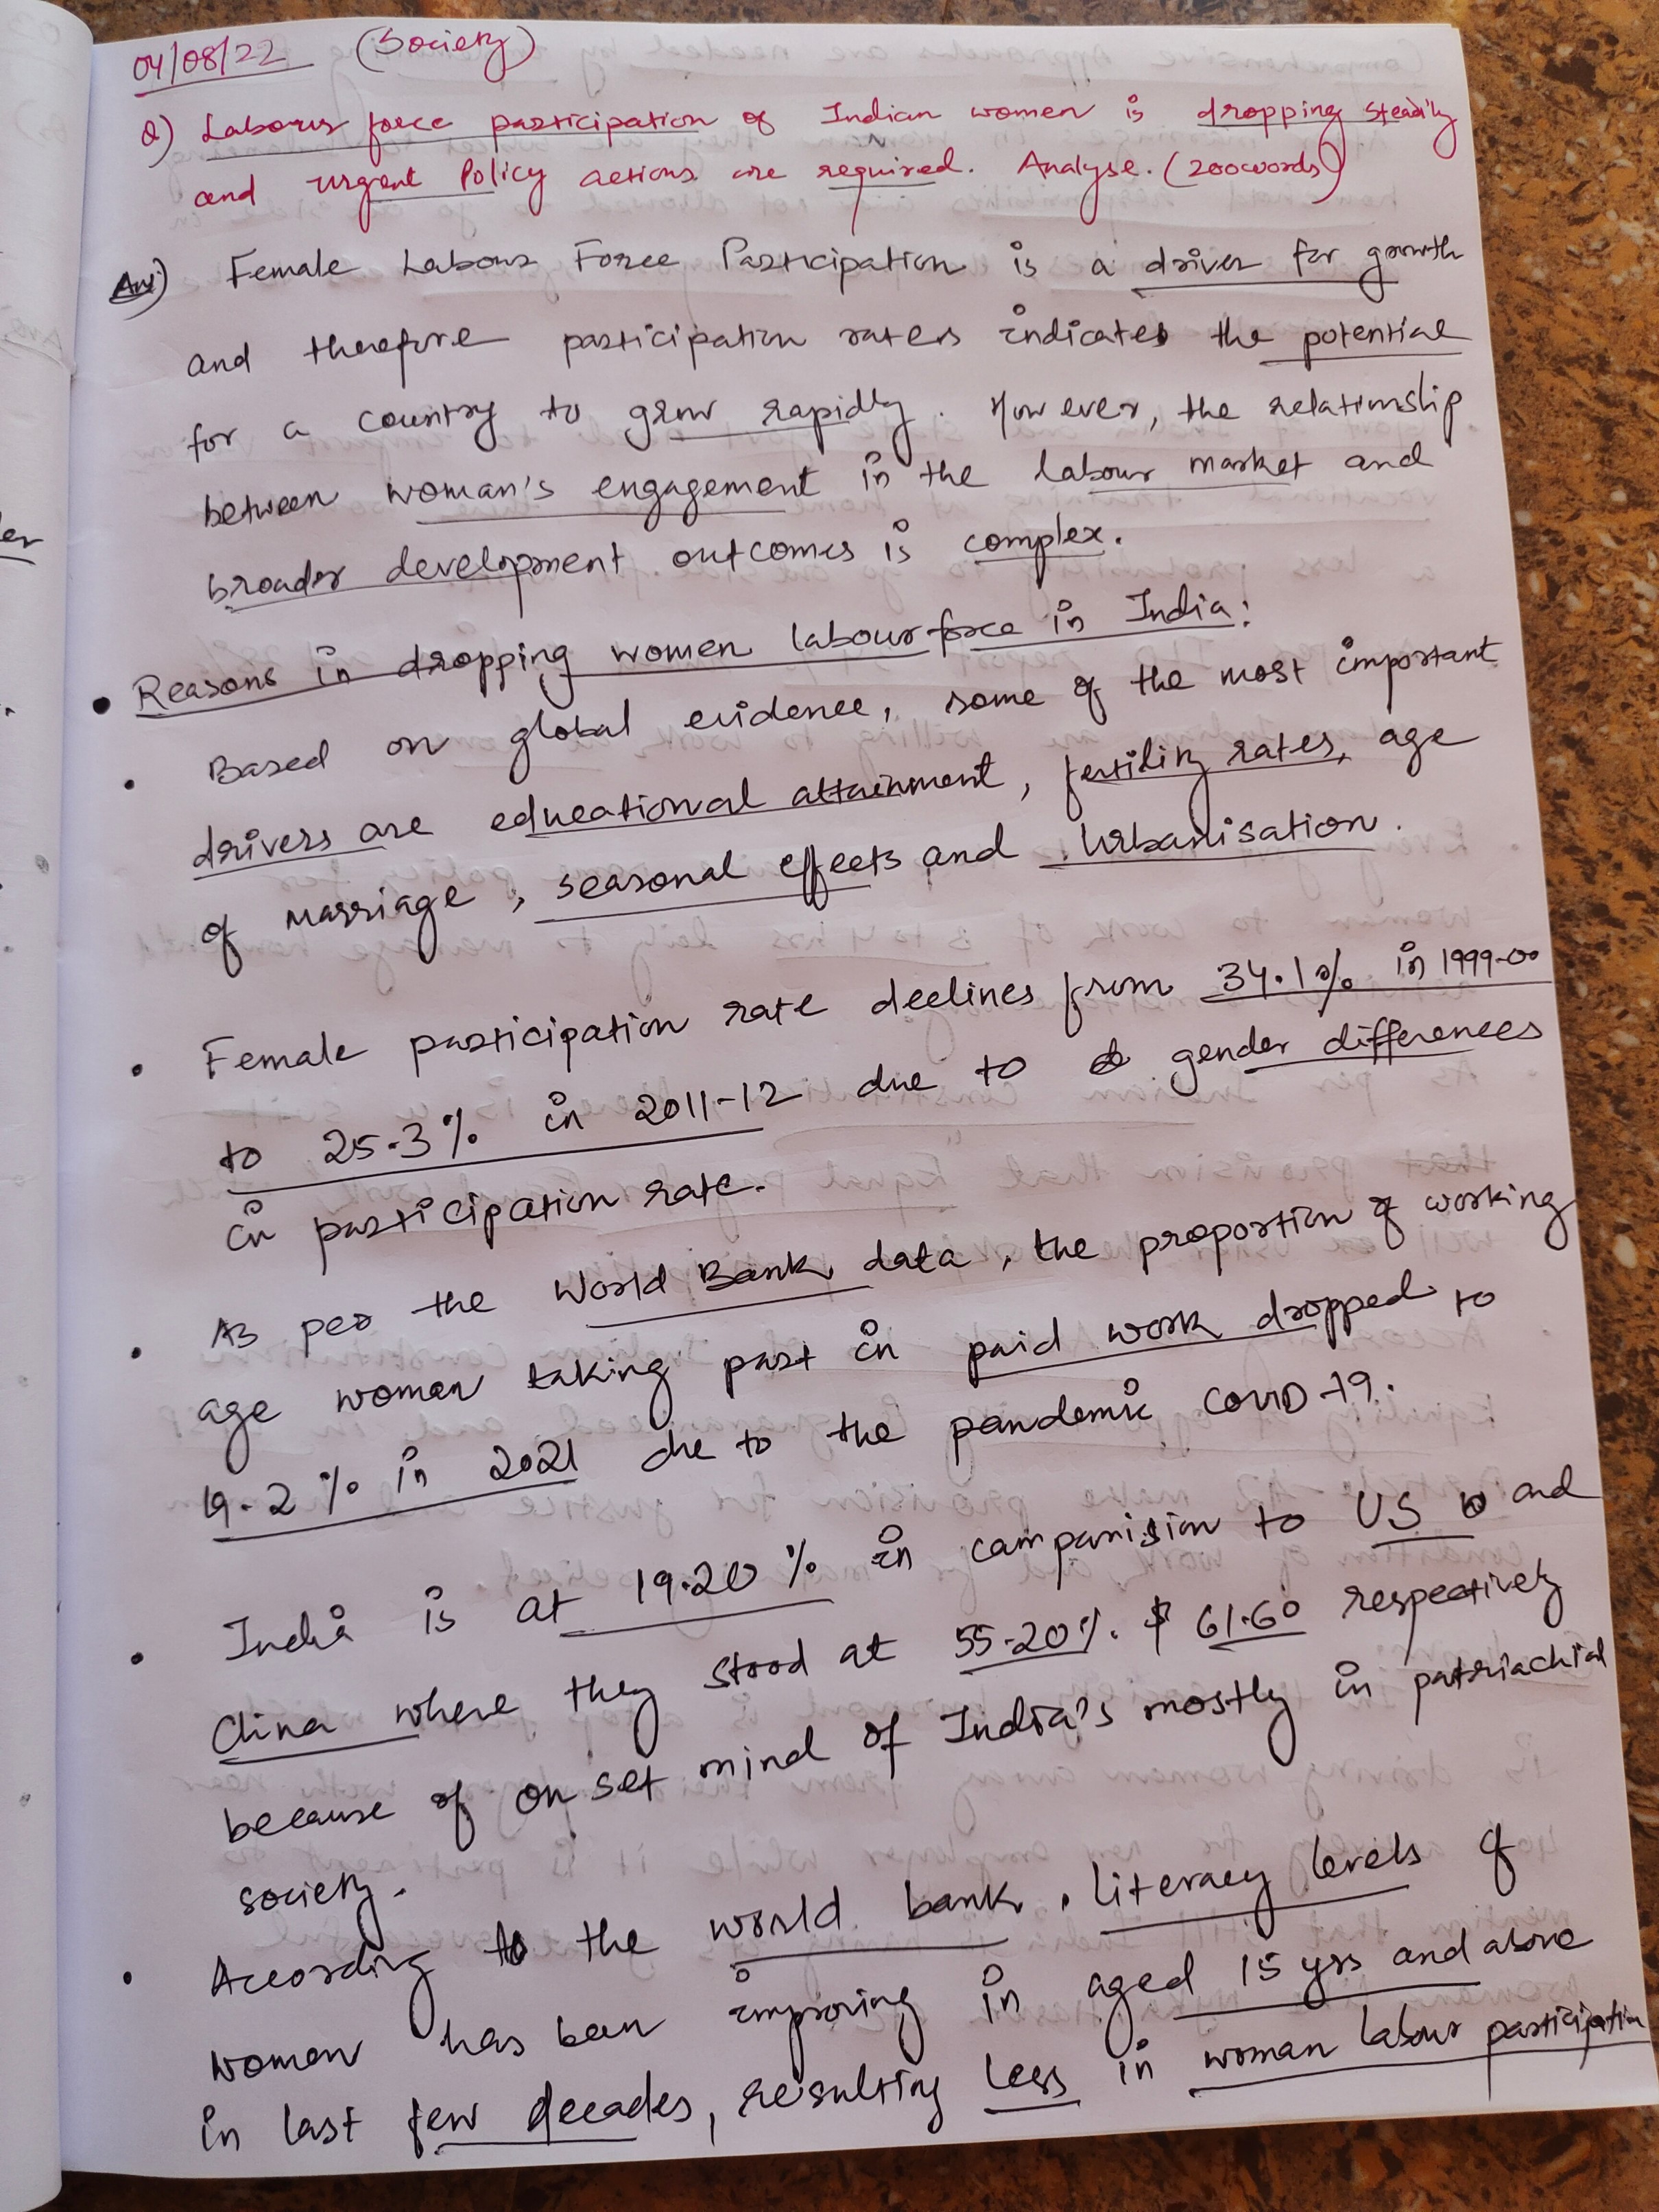 04/08/22 (Society)
Q) Labour force participation of Indian women is dropping steadily
and urgent Policy actions are required. Analyse. (200words)
Ans) Female Labour Force Participation is a driver for growth
and therefore participation rates indicates the potential
for a country to grow rapidly. However, the relationship
between woman's engagement in the labour market and
broader development outcomes is complex.
• Reasons in dropping women labour force in India:
• Based on global evidence, some of the most important
drivers are educational attainment, fertility rates, age
of marriage, seasonal effects and Urbanisation.
• Female participation rate declines from 34.1% in 1999-00
to 25.3% in 2011-12 due to gender differences
in participation rate.
• As per the World Bank data, the proportion of working
age women taking part in paid work dropped to
19.2% in 2021 due to the pandemic COVID-19.
• India is at 19.20% in comparision to US and
China where they stood at 55.20% & 61.60 respectively
because of on set mind of India's mostly in patriachial
society.
• According to the world bank, literacy levels of
women has been improving in aged 15 yrs and above
in last few decades, resulting less in woman labour participation
er